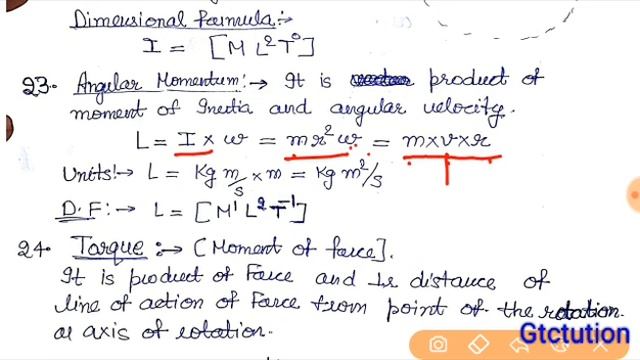 Dimensional Formula:-
I = [M L² T⁰]
23. Angular Momentum:→ It is product of
moment of Inertia and angular velocity.
L = I × ω = mr²ω = m×v×r
Units!→ L = Kg m/s × m = Kg m²/s
D.F:→ L = [M¹ L² T⁻¹]
24. Torque:→ [Moment of force].
It is product of Force and ⊥r distance of
line of action of Force from point of the rotation
or axis of rotation.
Gtctution